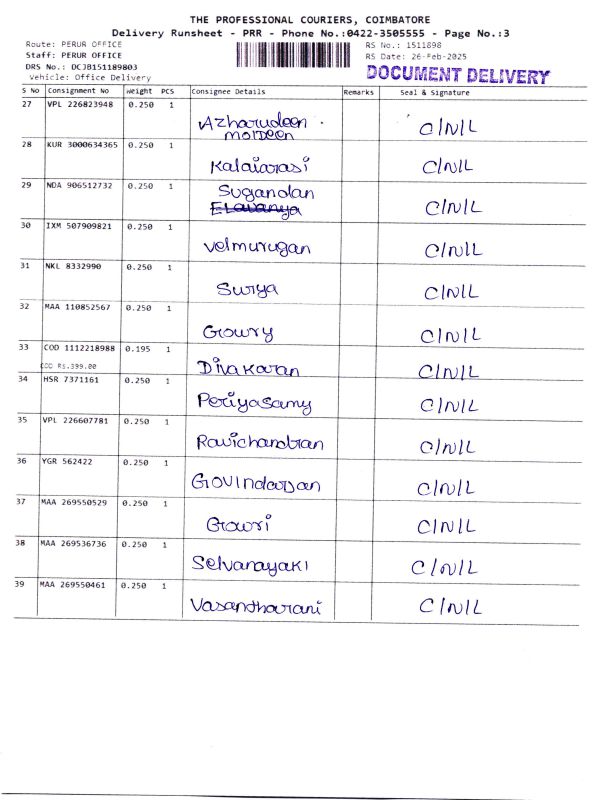 THE PROFESSIONAL COURIERS, COIMBATORE
Delivery Runsheet - PRR - Phone No.:0422-3505555 - Page No.:3
Route: PERUR OFFICE
RS No.: 1511898
Staff: PERUR OFFICE
RS Date: 26-Feb-2025
DRS No.: DCJB151189803
Vehicle: Office Delivery
DOCUMENT DELIVERY
S No Consignment No Weight PCS Consignee Details Remarks Seal & Signature
27 VPL 226823948 0.250 1
Azharudeen C/N/L
moideen
28 KUR 3000634365 0.250 1
Kalaiarasi C/N/L
29 NDA 906512732 0.250 1 Sugandan
C/N/L
30 IXM 507909821 0.250 1
Velmurugan C/N/L
31 NKL 8332990 0.250 1
Surya C/N/L
32 MAA 110852567 0.250 1
Gowry C/N/L
33 COD 1112218988 0.195 1
COD Rs.399.00 Divakaran C/N/L
34 HSR 7371161 0.250 1
Periyasamy C/N/L
35 VPL 226607781 0.250 1
Ravichandran C/N/L
36 YGR 562422 0.250 1
Govindarsan C/N/L
37 MAA 269550529 0.250 1
Gowri C/N/L
38 MAA 269536736 0.250 1
Selvanayaki C/N/L
39 MAA 269550461 0.250 1
Vasantharani C/N/L